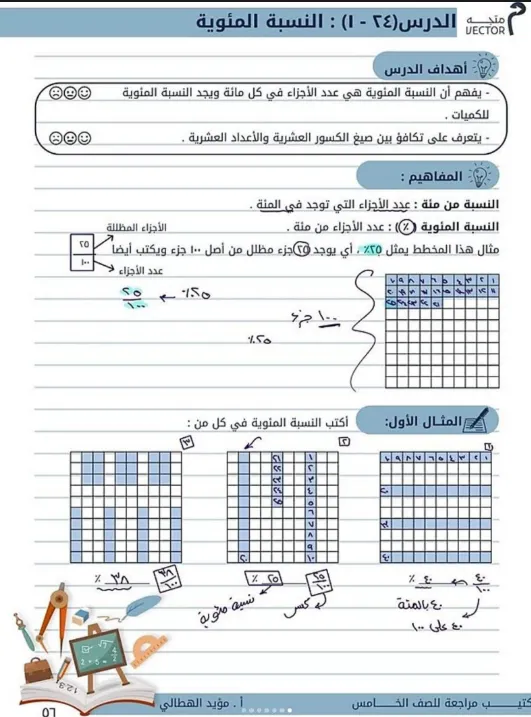 الدرس(٢٤ - ١) : النسبة المئوية
متجه
VECTOR
أهداف الدرس
- يفهم أن النسبة المئوية هي عدد الأجزاء في كل مائة ويجد النسبة المئوية
للكميات .
- يتعرف على تكافؤ بين صيغ الكسور العشرية والأعداد العشرية .
المفاهيم :
النسبة من مئة : عدد الأجزاء التي توجد في المئة .
النسبة المئوية (٪) : عدد الأجزاء من مئة .
مثال هذا المخطط يمثل ٢٥٪ ، أي يوجد ٢٥ جزء مظلل من أصل ١٠٠ جزء ويكتب أيضا
الأجزاء المظللة
٢٥
١٠٠
عدد الأجزاء
٢٥٪
٢٥
١٠٠
١٠٠ جزء
٢٥٪
المثال الأول:
أكتب النسبة المئوية في كل من :
١
٢
٣
١ ٢ ٣ ٤ ٥ ٦ ٧ ٨ ٩ ١٠
٢٠
٣٠
٤٠
١
٢
٣
٤
٥
٦
٧
٨
٩
١٠
٢٠
٢١
٢٢
٢٣
٢٤
٢٥
٤٠
١٠٠
٤٠ ٪
٤٠ بالمئة
٤٠ على ١٠٠
٢٥
١٠٠
٢٥ ٪
كسر
نسبة مئوية
٣٨
١٠٠
٣٨ ٪
كتيب مراجعة للصف الخامس
أ . مؤيد الهطالي
٥٦